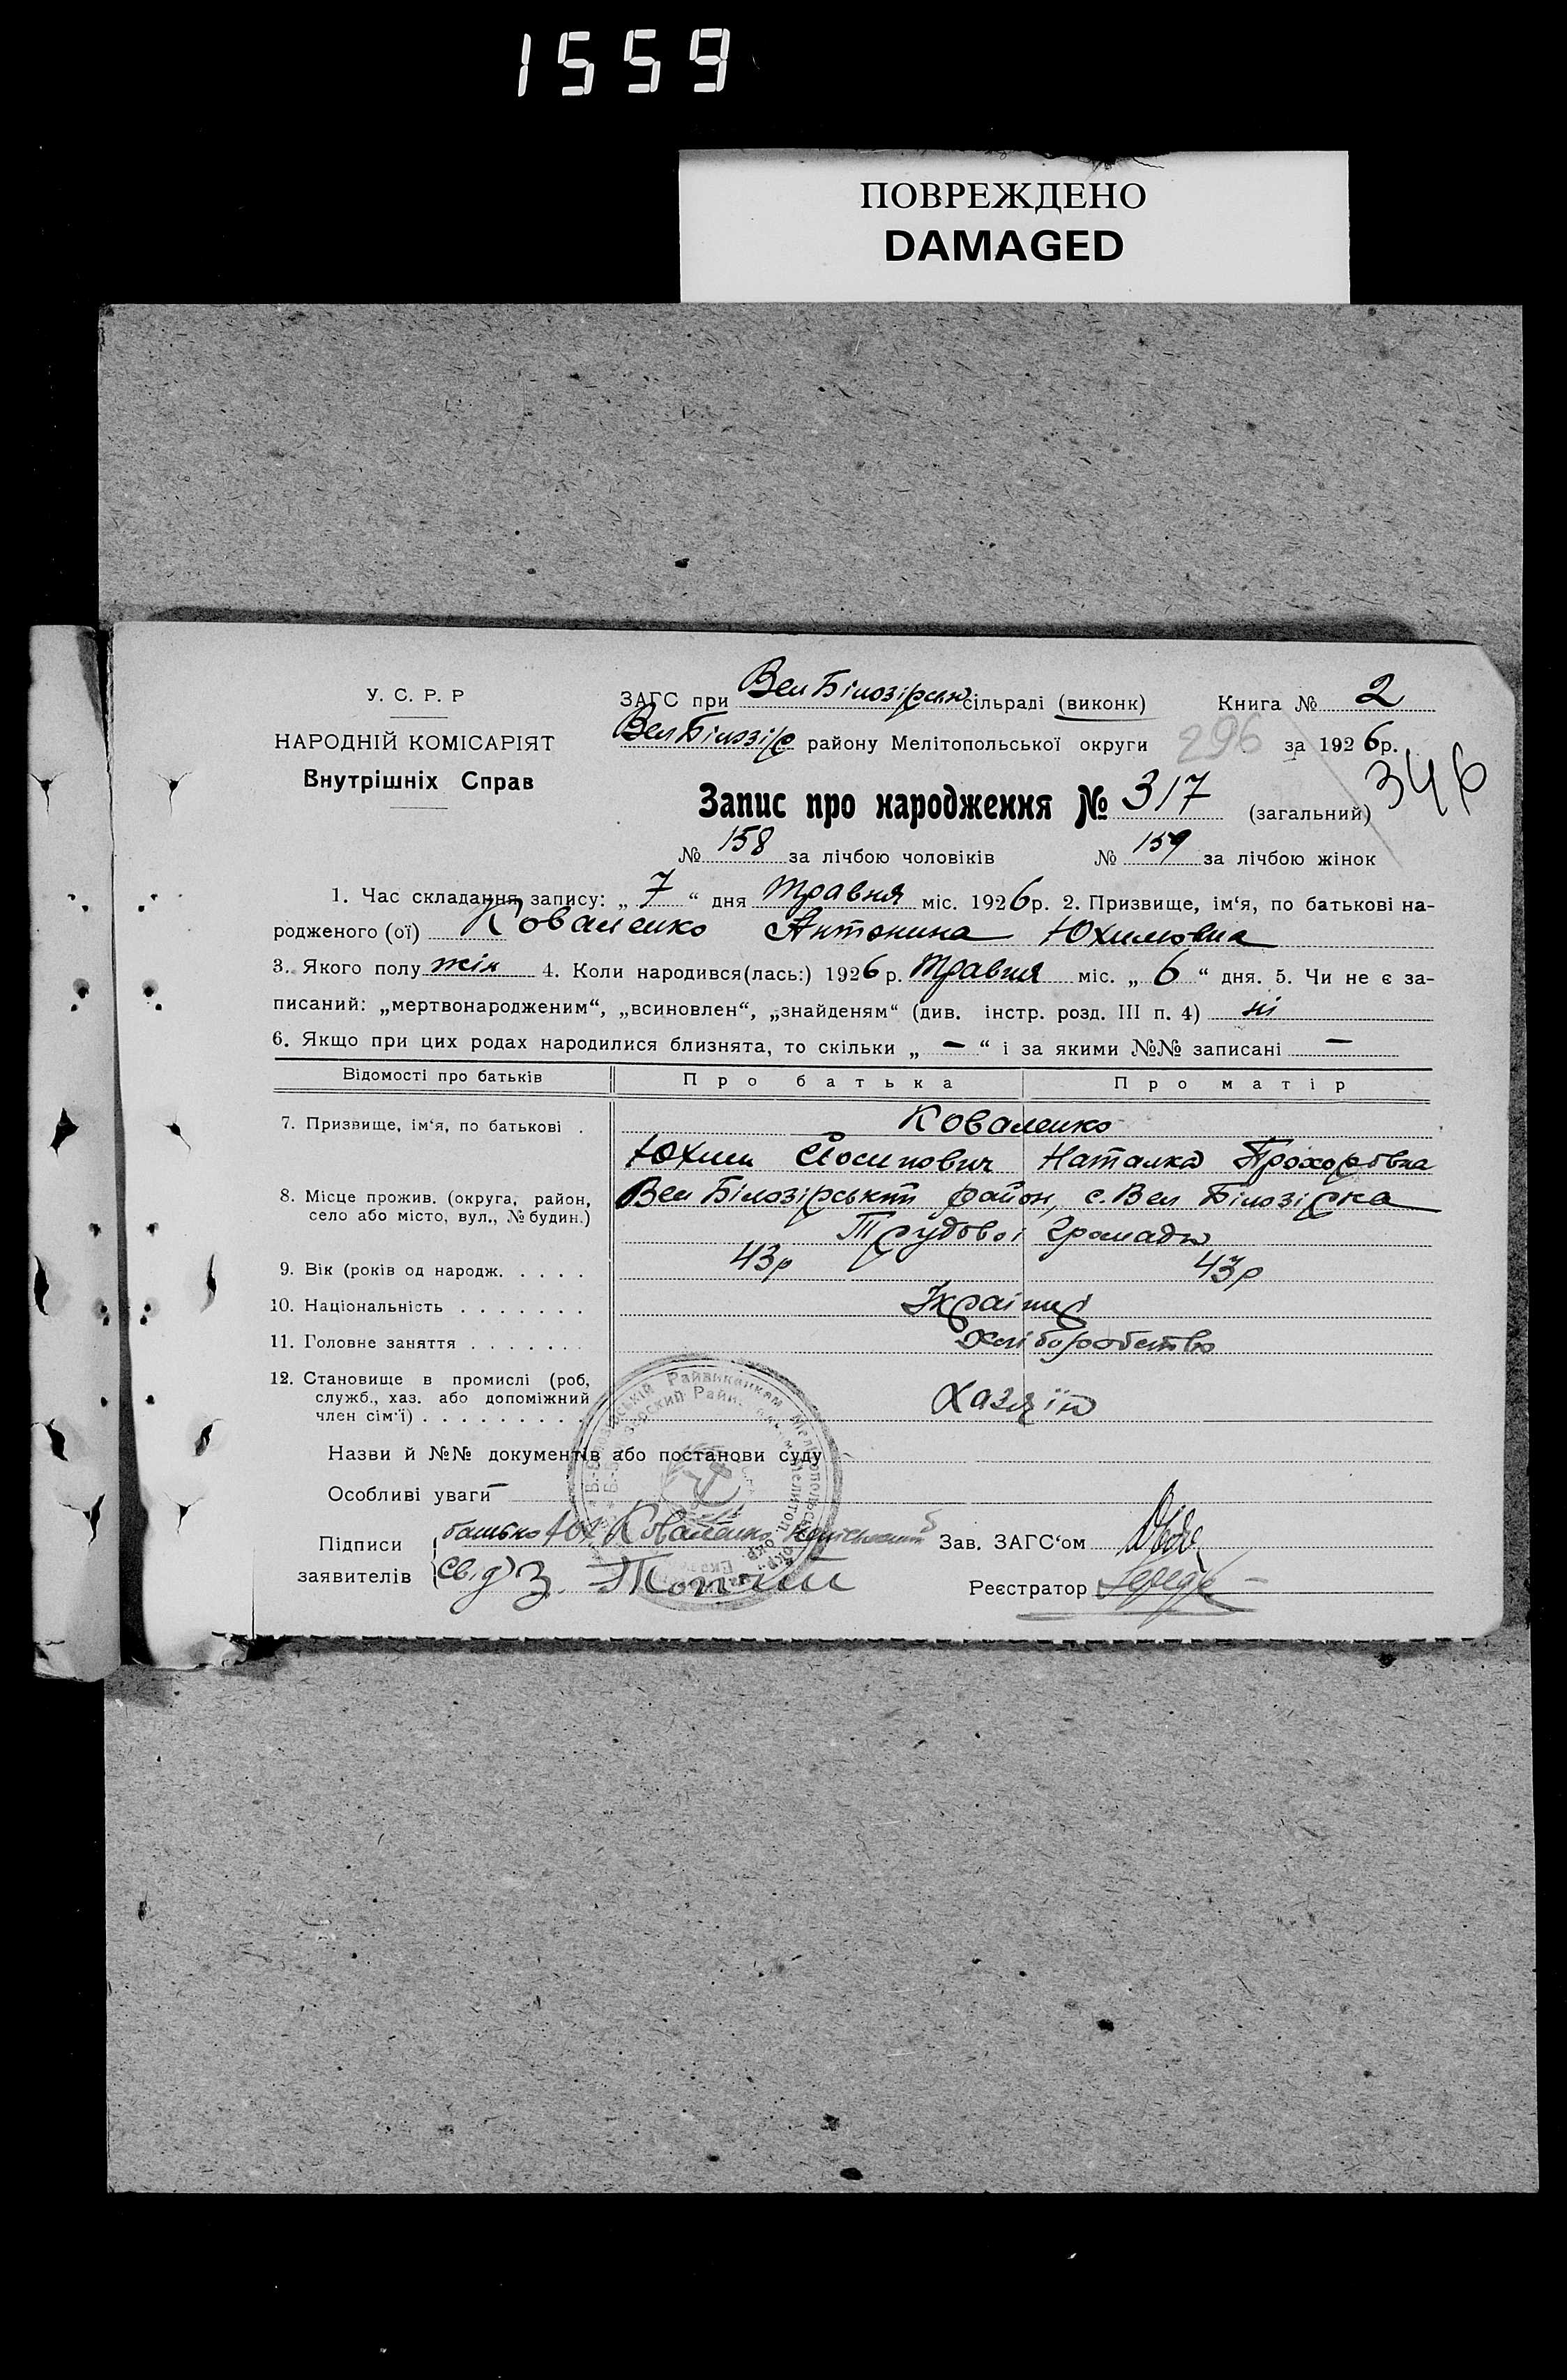 1559
ПОВРЕЖДЕНО
DAMAGED
У. С. Р. Р
НАРОДНІЙ КОМІСАРІЯТ
Внутрішніх Справ
ЗАГС при Вел Білозірськ сільраді (виконк) Книга № 2
Вел Білозір району Мелітопольської округи 296 за 1926р.
346
Запис про народження № 317 (загальний)
№ 158 за лічбою чоловіків № 159 за лічбою жінок
1. Час складання запису: „ 7 “ дня травня міс. 1926р. 2. Призвище, ім‘я, по батькові на-
родженого (ої) Коваленко Антонина Юхимовна
3. Якого полу жін 4. Коли народився(лась:) 1926 р. травня міс. „ 6 “ дня. 5. Чи не є за-
писаний: „мертвонародженим“, „всиновлен“, „знайденям“ (див. інстр. розд. III п. 4) ні
6. Якщо при цих родах народилися близнята, то скільки „ — “ і за якими №№ записані —
Відомості про батьків Про батька Про матір
7. Призвище, ім‘я, по батькові . Коваленко
Юхим Йосипович Наталка Прохоровна
8. Місце прожив. (округа, район, Вел Білозірський район, с. Вел Білозірка
село або місто, вул., № будин.)
Трудової Громади
9. Вік (років од народж. . . . . 43р 43р
10. Національність . . . . . . . Українці
11. Головне заняття . . . . . . . Хліборобство
12. Становище в промислі (роб,
служб., хаз. або допоміжний
член сім‘ї) . . . . . . . . . Хазяїн
Назви й №№ документів або постанови суду
Особливі уваги
Підписи батько Юх Коваленко Зав. ЗАГС‘ом
заявителів Свід З. Реєстратор